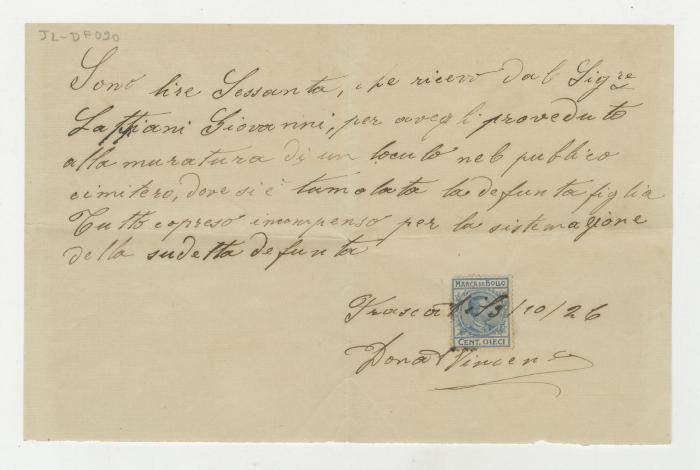 JL-DF020
Sono lire Sessanta, che ricevo dal Sig.re
Giovanni, per avegli proveduto
alla muratura di un loculo nel publico
cimitero, dove si è tumolata la defunta figlia
Tutto copreso incompenso per la sistemazione
della sudetta defunta
MARCA DA BOLLO
/10/26
CENT. DIECI